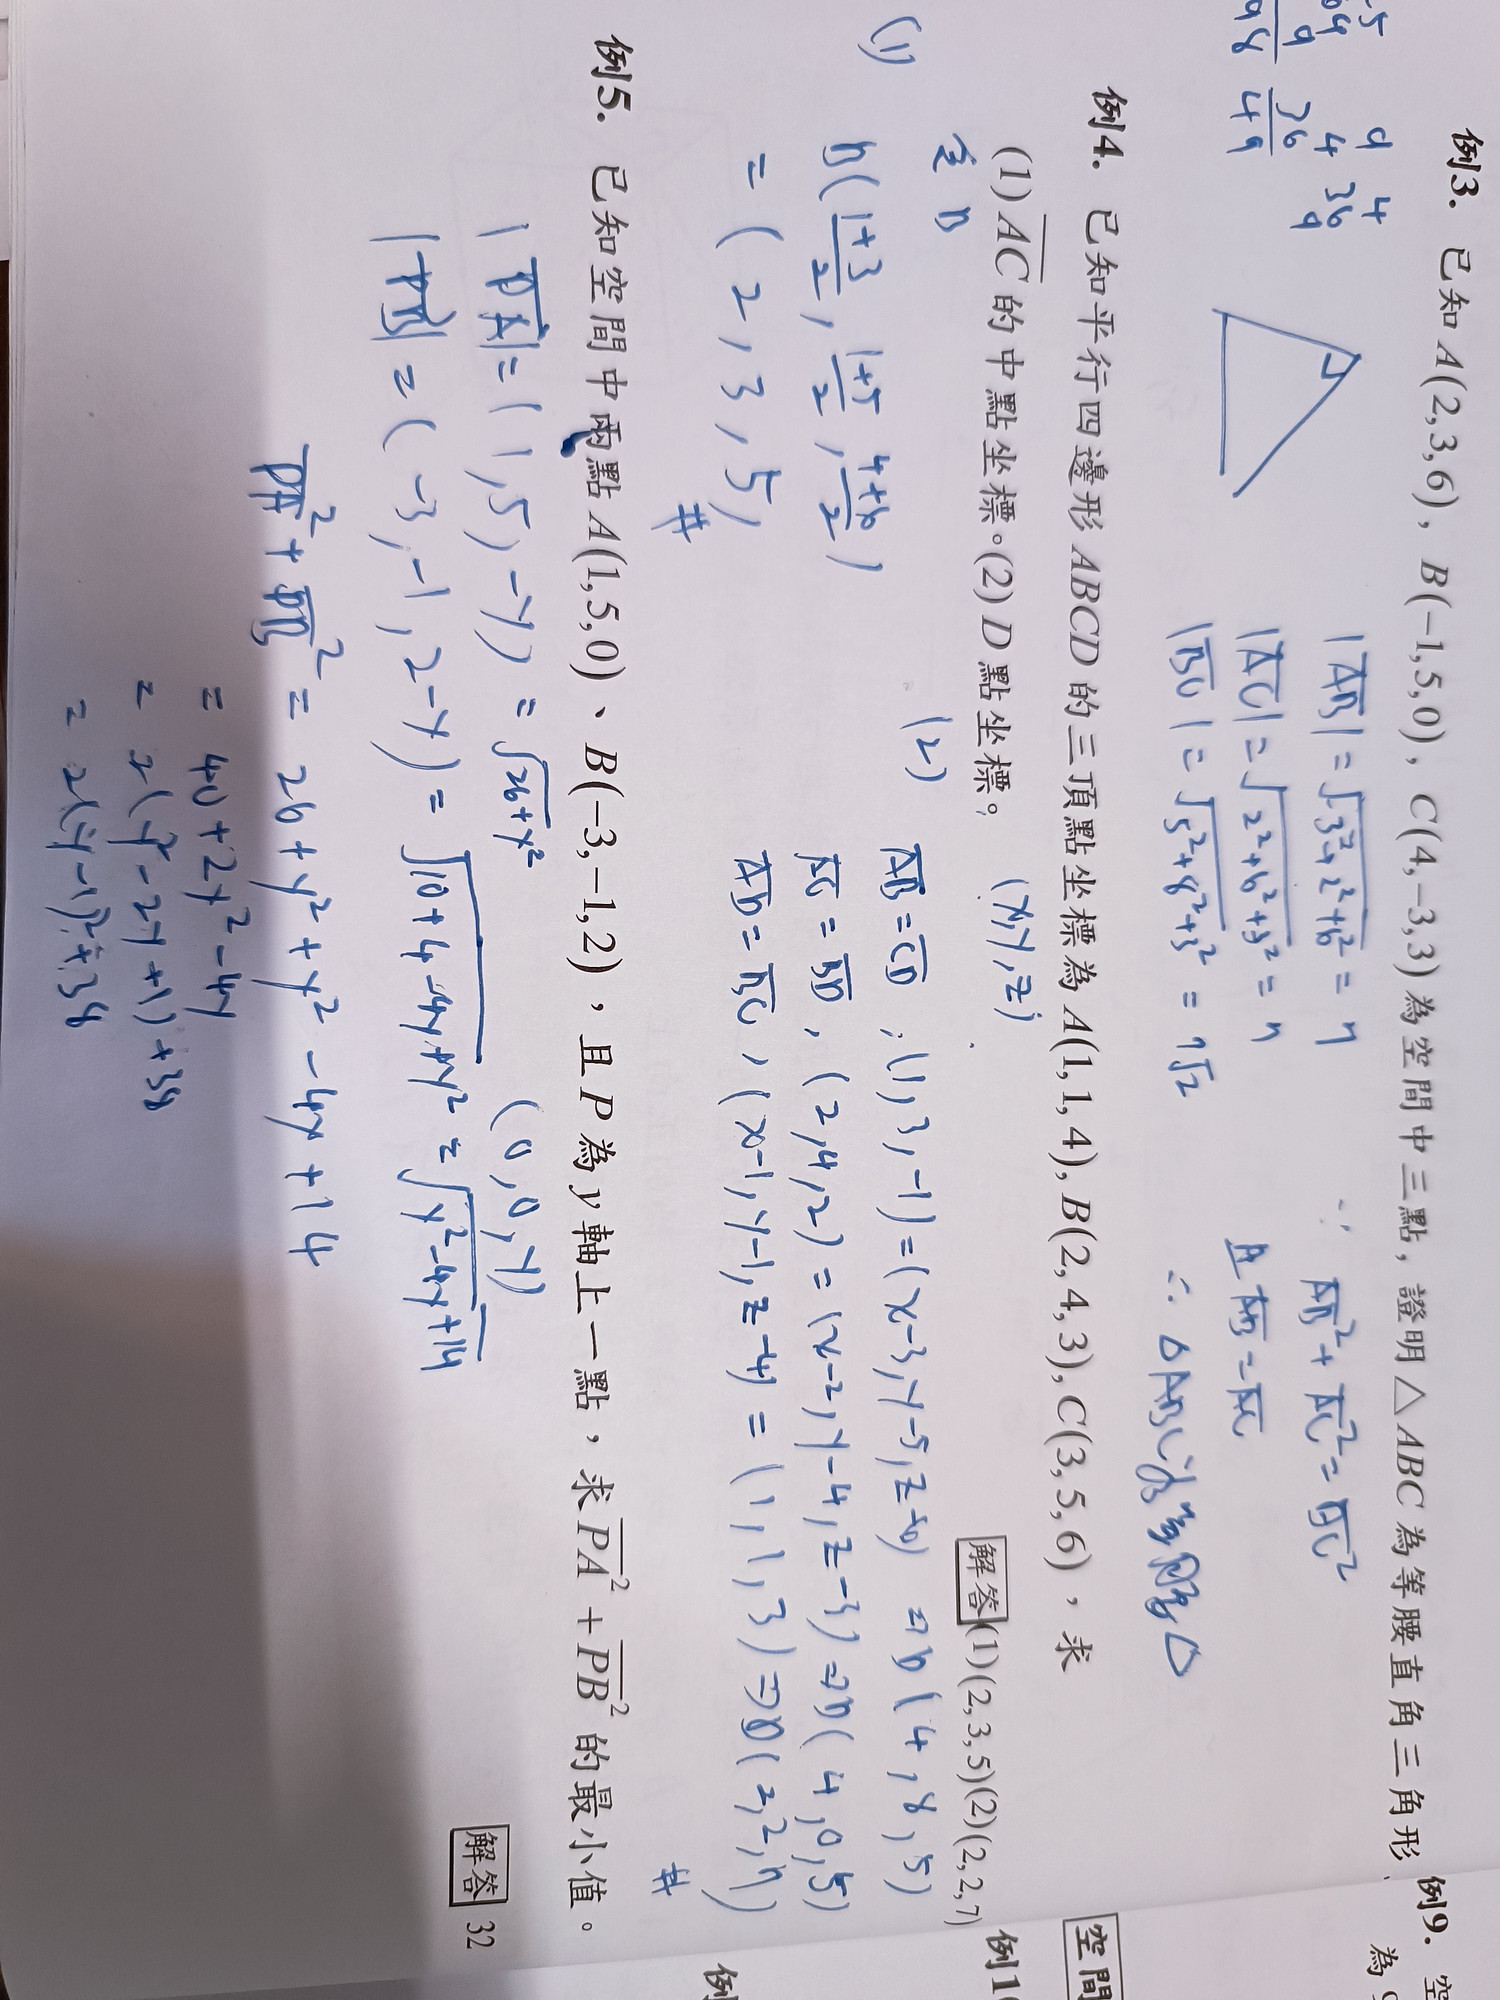 例3. 已知 A(2,3,6), B(-1,5,0), C(4,-3,3) 為空間中三點, 證明 △ABC 為等腰直角三角形
|AB| = √3²+2²+6² = 7
|AC| = √2²+6²+3² = 7
|BC| = √5²+8²+3² = 7√2
∵ AB² + AC² = BC²
且 AB = AC
∴ △ABC為等腰△
例4. 已知平行四邊形 ABCD 的三頂點坐標為 A(1,1,4), B(2,4,3), C(3,5,6),求
(1) AC 的中點坐標。(2) D 點坐標。
解答 (1)(2,3,5)(2)(2,2,7)
(x,y,z)
(1)
(1+3/2, 1+5/2, 4+6/2)
= (2,3,5)
#
(2)
AB = CD, (1,3,-1) = (x-3,y-5,z-6) ⇒ D(4,8,5)
AC = BD, (2,4,2) = (x-2,y-4,z-3) ⇒ D(4,0,5)
AD = BC, (x-1,y-1,z-4) = (1,1,3) ⇒ D(2,2,7)
#
例5. 已知空間中兩點 A(1,5,0)、B(-3,-1,2),且 P 為 y 軸上一點,求 PA² + PB² 的最小值。
解答 32
(0,0,y)
|PA| = (1,5,-y) = √26+y²
|PB| = (-3,-1,2-y) = √10+4-4y+y² = √y²-4y+14
PA² + PB² = 26+y²+y²-4y+14
= 40+2y²-4y
= 2(y²-2y+1)+38
= 2(y-1)²+38
空間
例9. 空
為
例10
例